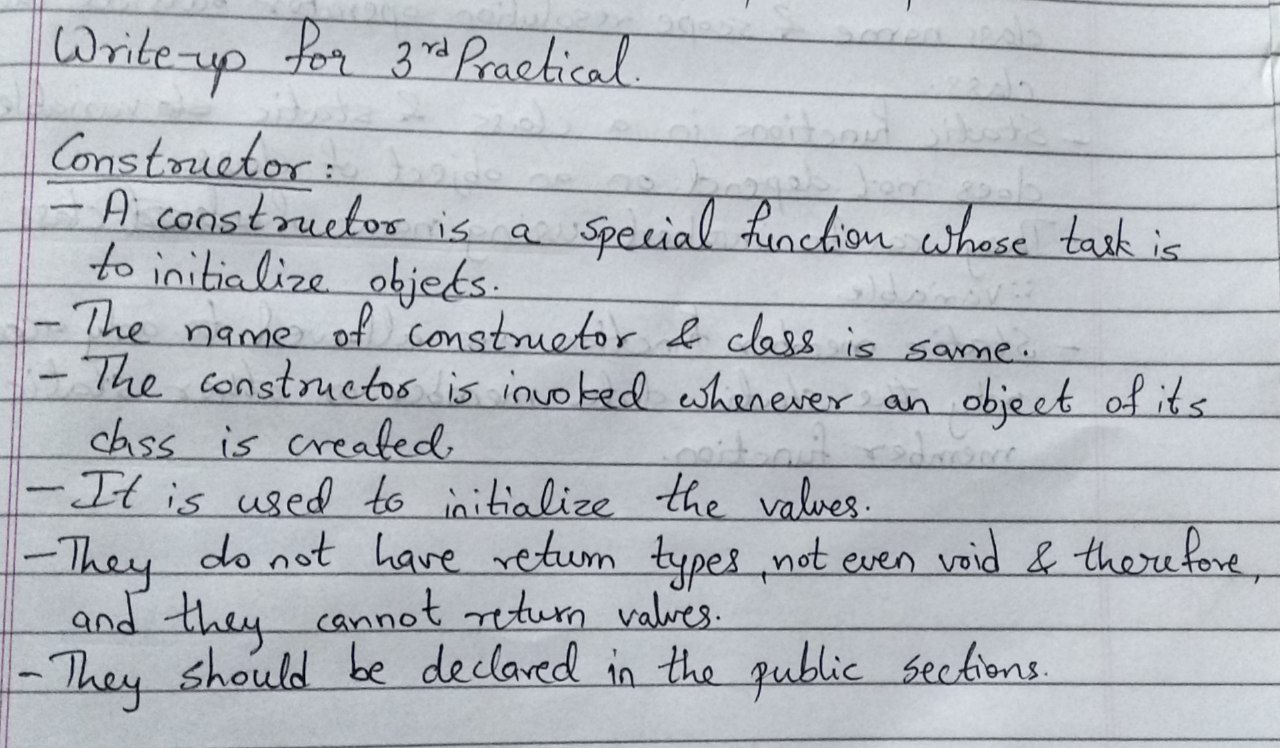 Write-up for 3rd Practical.
Constructor:
- A constructor is a special function whose task is
to initialize objects.
- The name of constructor & class is same.
- The constructor is invoked whenever an object of its
class is created.
- It is used to initialize the values.
- They do not have return types, not even void & therefore,
and they cannot return values.
- They should be declared in the public sections.